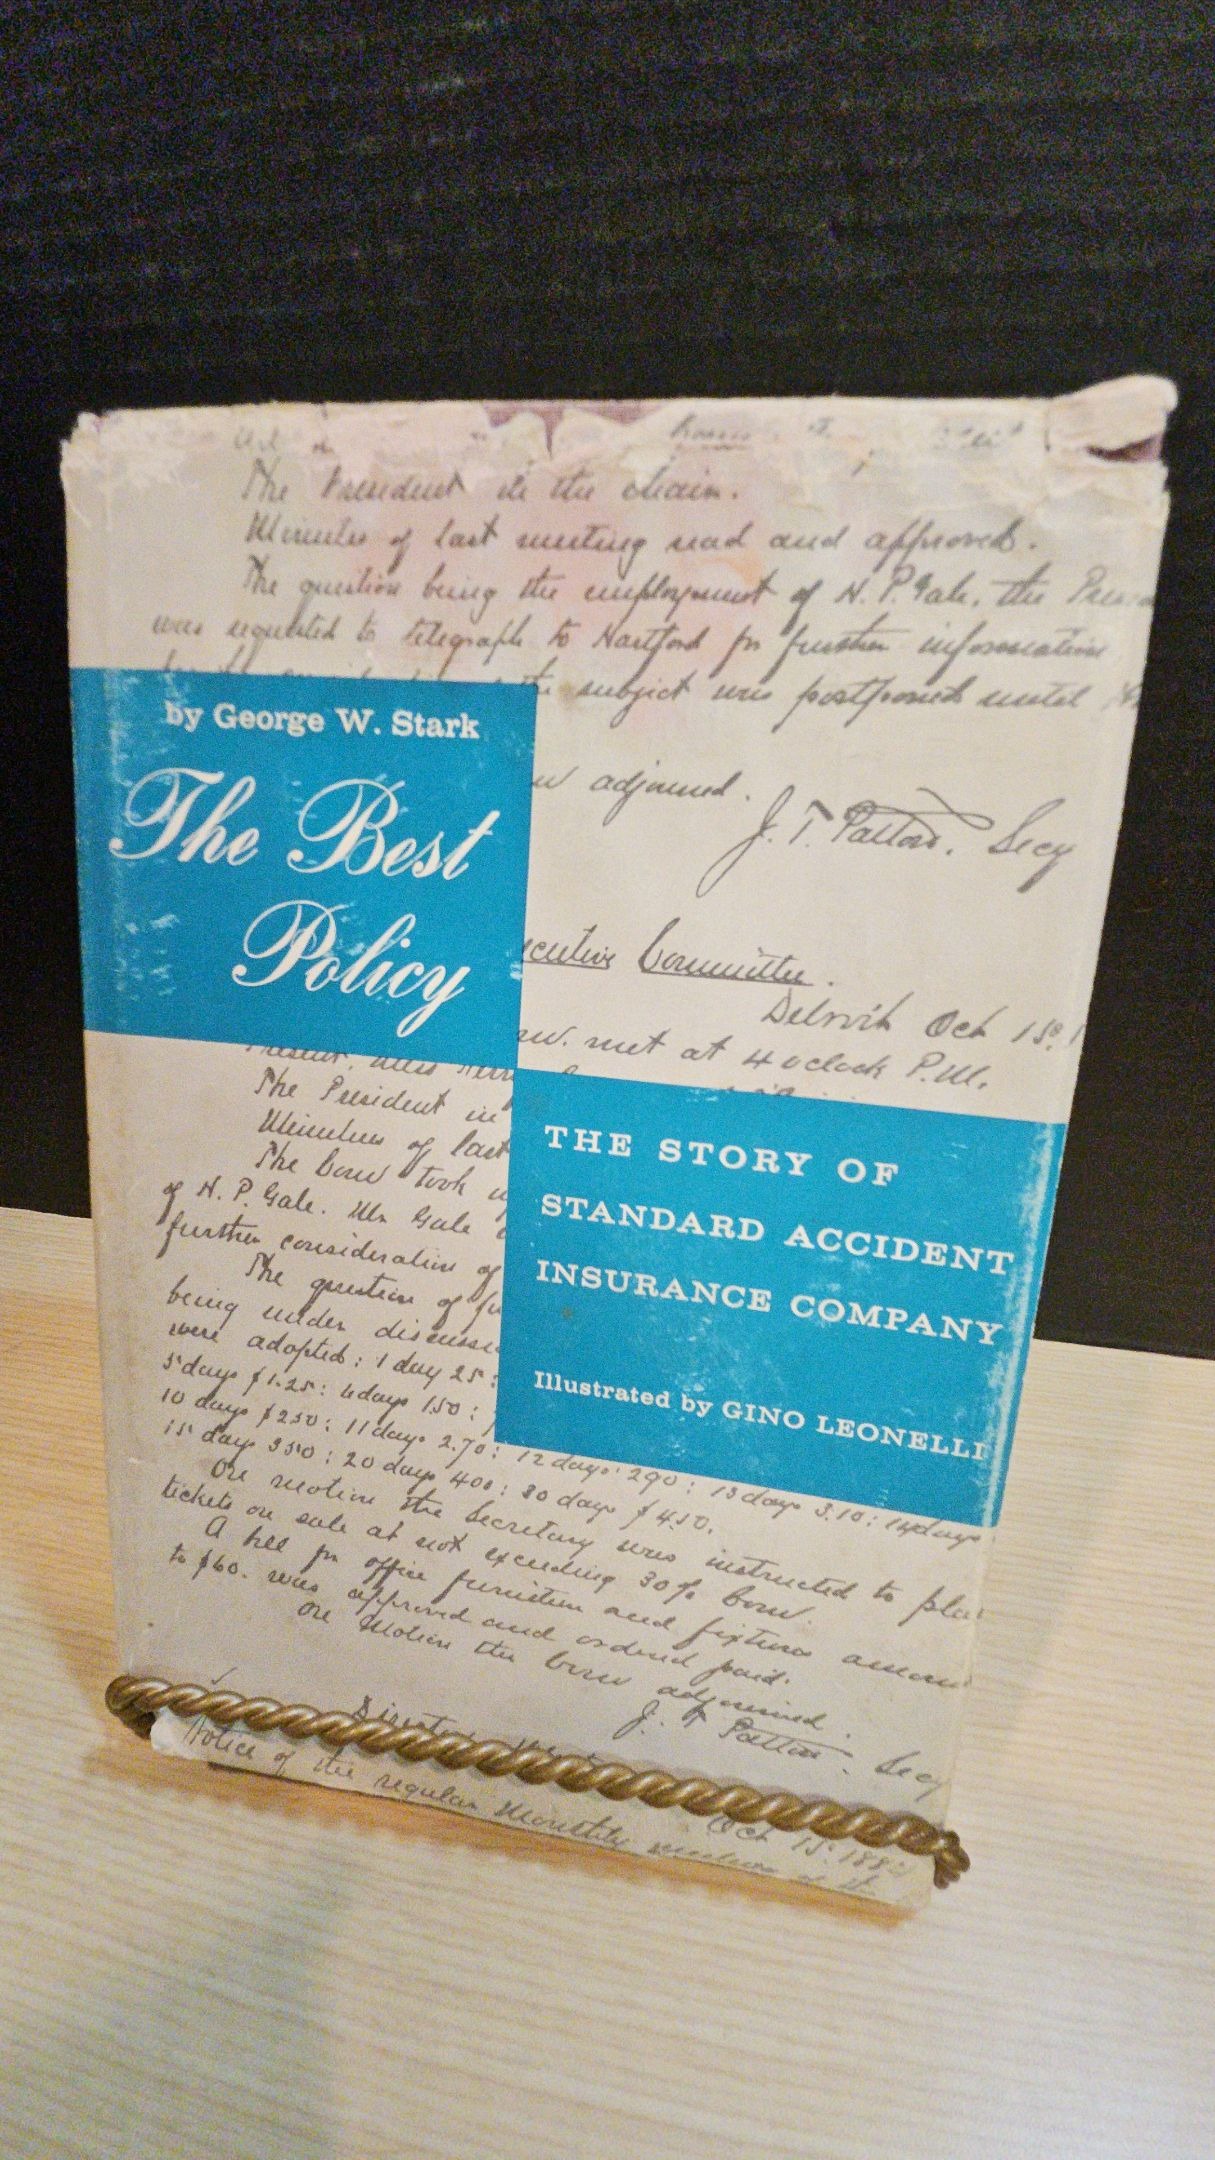 The President in the chair.
Minutes of last meeting read and approved.
The question being the employment of H. P. Gale, the
was requested to telegraph to Hartford for further information
the subject was postponed until
by George W. Stark
The Best
Policy
adjourned.
J. T. Patton, Secy
ecutive Committee.
Detroit Oct 15
met at 4 oclock P.M.
The President in
Minutes of last
The Com took up
of H. P. Gale. Mr Gale
further consideration of
The question of
being under discussi
were adopted: 1 day 25:
5 days $1.25: 6 days 1.50:
10 days $2.50: 11 days 2.70: 12 days 2.90: 13 days 3.10: 14 days
15 days 3.50: 20 days 4.00: 30 days $4.50.
On motion the Secretary was instructed to pla
tickets on sale at not exceeding 30% Com.
A bill for office furniture and fixtures amoun
to $60. was approved and ordered paid.
On Motion the Com adjourned.
J. T. Patton Secy
THE STORY OF
STANDARD ACCIDENT
INSURANCE COMPANY
Illustrated by GINO LEONELLI
Oct 15 188
Notice of the regular Monthly